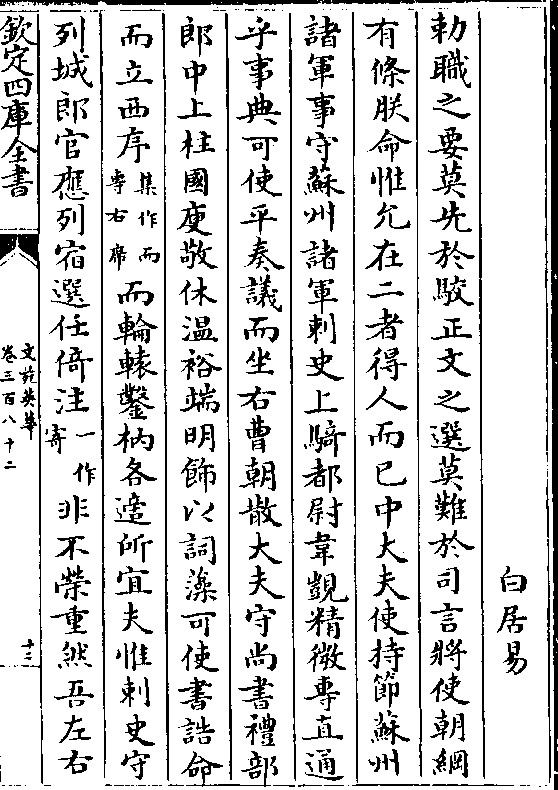 白居易
勅職之要莫先於駮正文之選莫難於司言將使朝綱
有條朕命惟允在二者得人而已中大夫使持節蘇州
諸軍事守蘇州諸軍刺史上騎都尉韋覬精微專直通
乎事典可使平奏議而坐右曹朝散大夫守尚書禮部
郎中上柱國庾敬休温裕端明飾以詞藻可使書誥命
而立西序集作而專右席而輪轅鑿枘各適所宜夫惟刺史守
列城郎官應列宿選任倚注一作寄非不榮重然吾左右
欽定四庫全書
文苑英華
卷三百八十二
十三